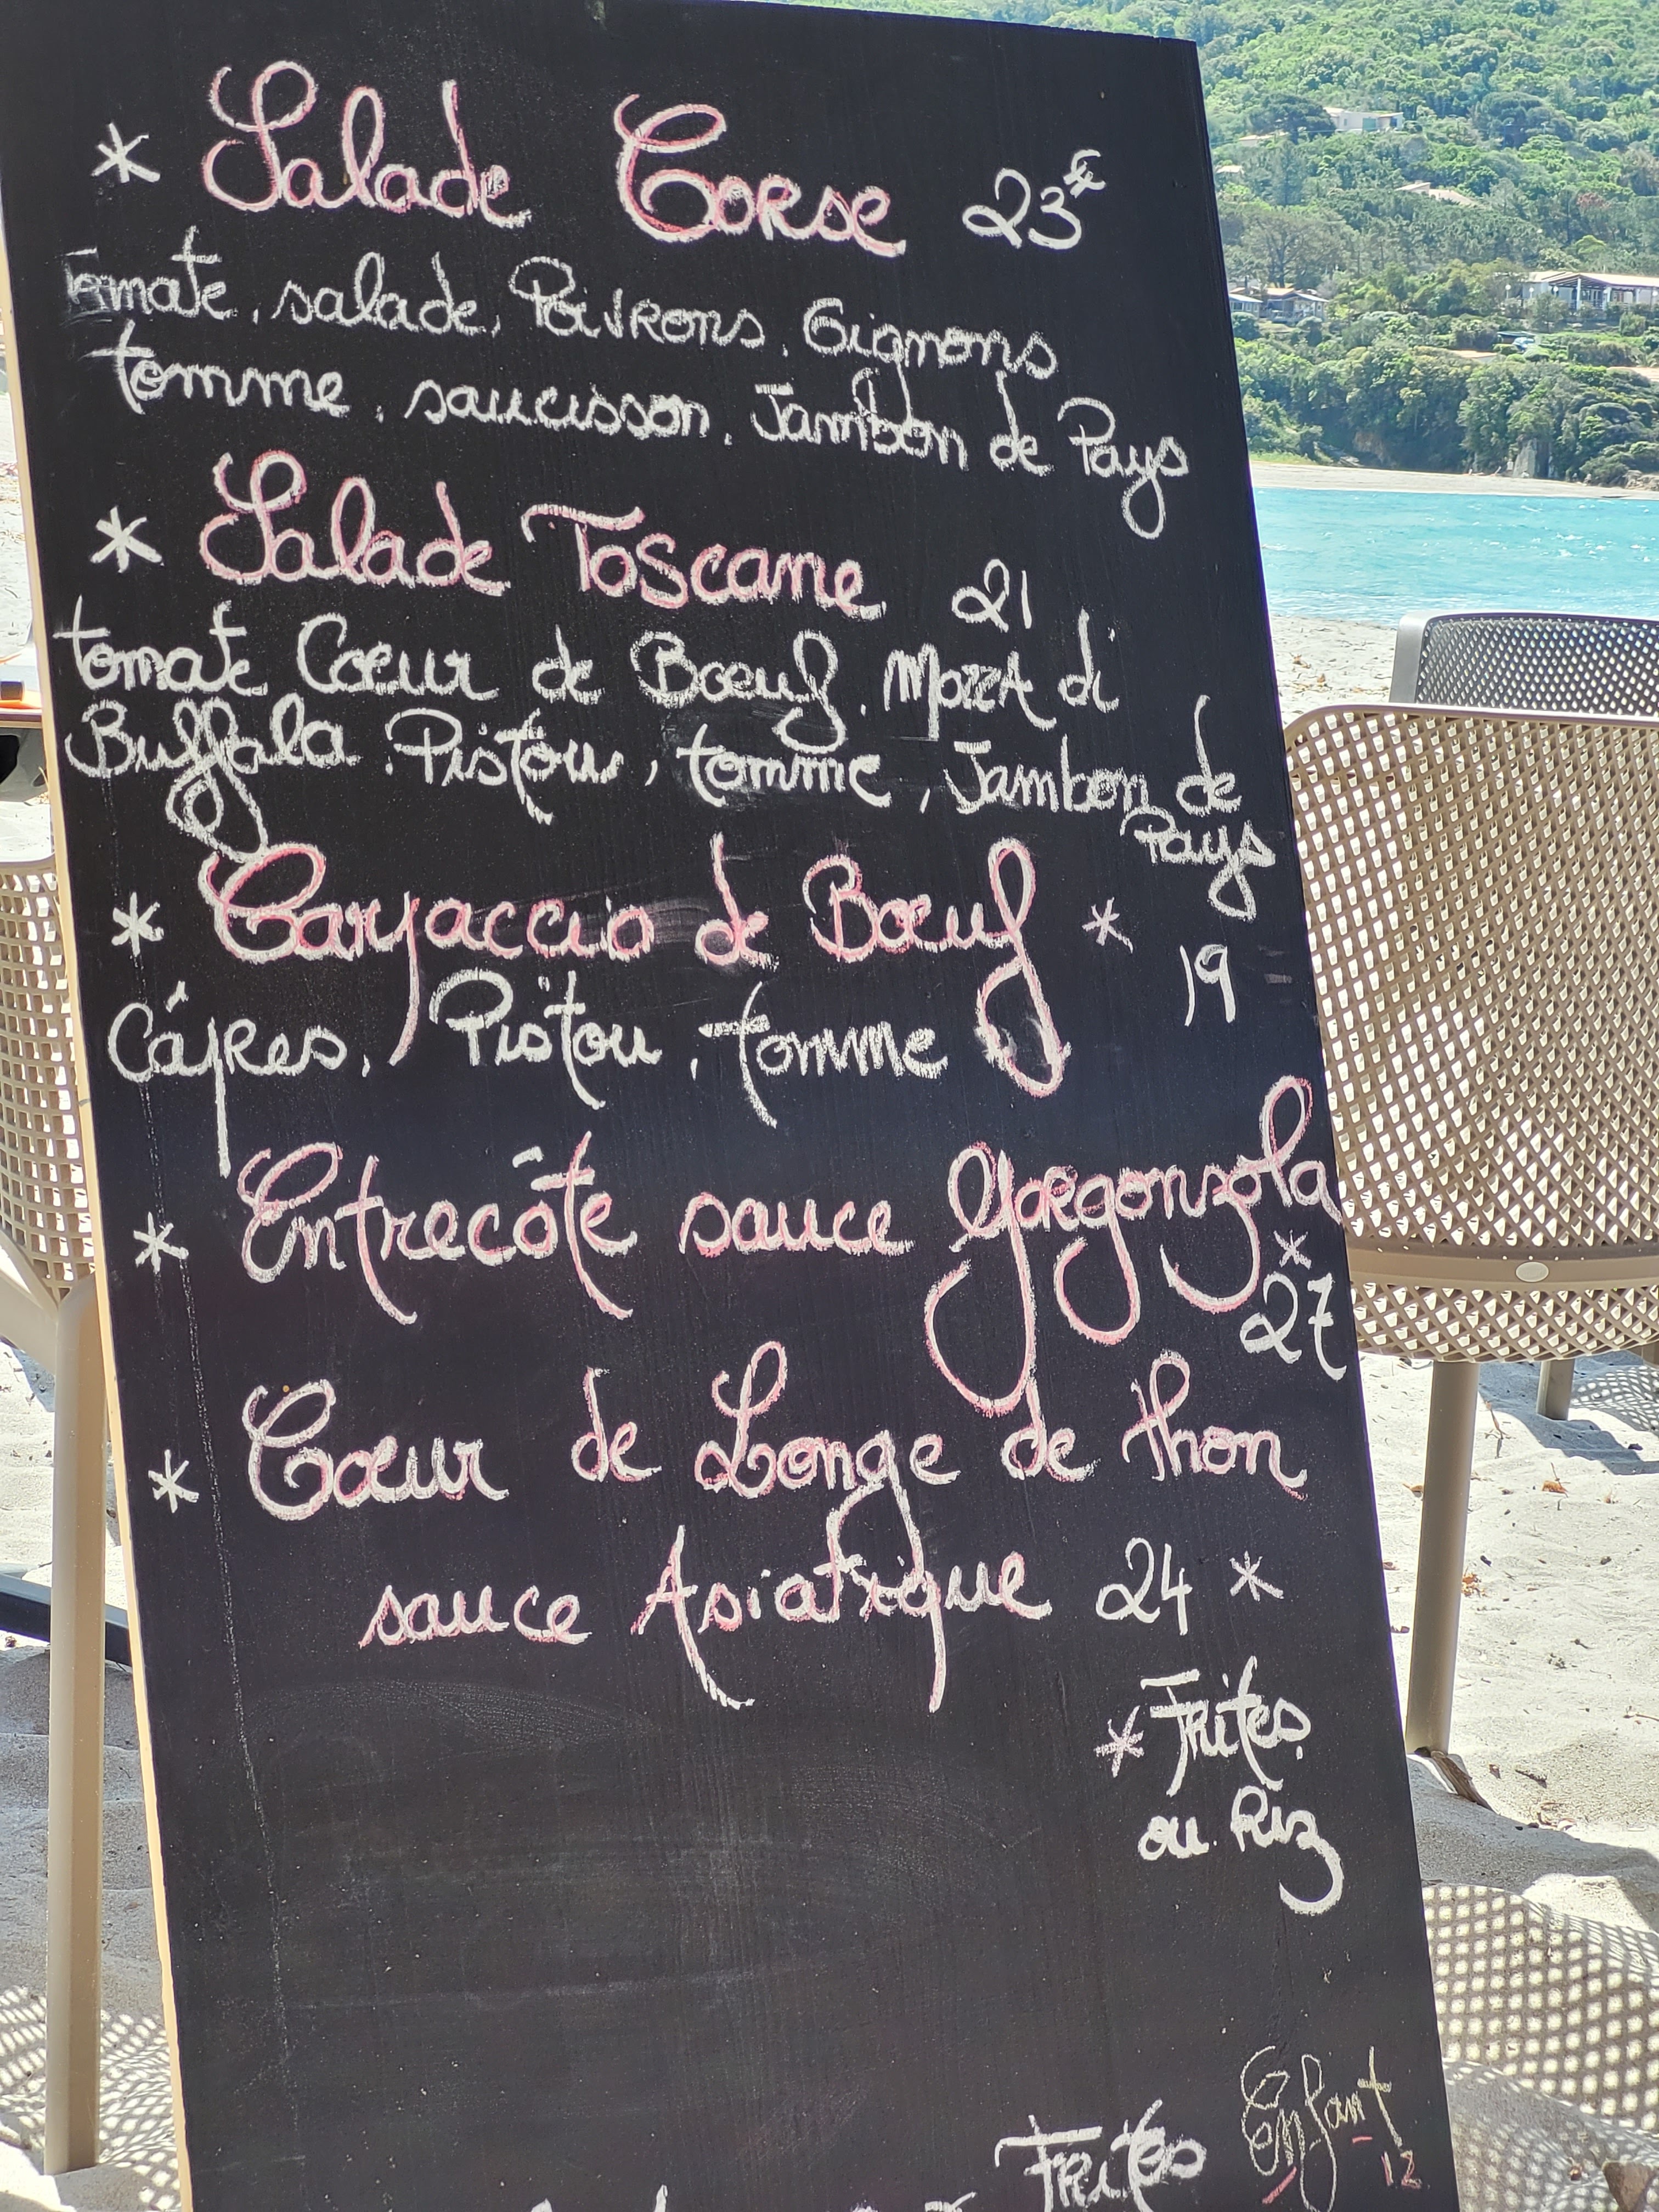 * Salade Corse 23€
Tomate, salade, Poivrons, Oignons
tomme, saucisson, Jambon de Pays
* Salade Toscane 21
tomate Coeur de Boeuf, Mozza di
Buffala, Pistou, tomme, Jambon de
Pays
* Carpaccio de Boeuf *
19
Câpres, Pistou, tomme
* Entrecôte sauce Gorgonzola
*
27
* Coeur de Longe de thon
sauce Asiatique 24 *
* Frites
ou Riz
Enfant
12
Frites